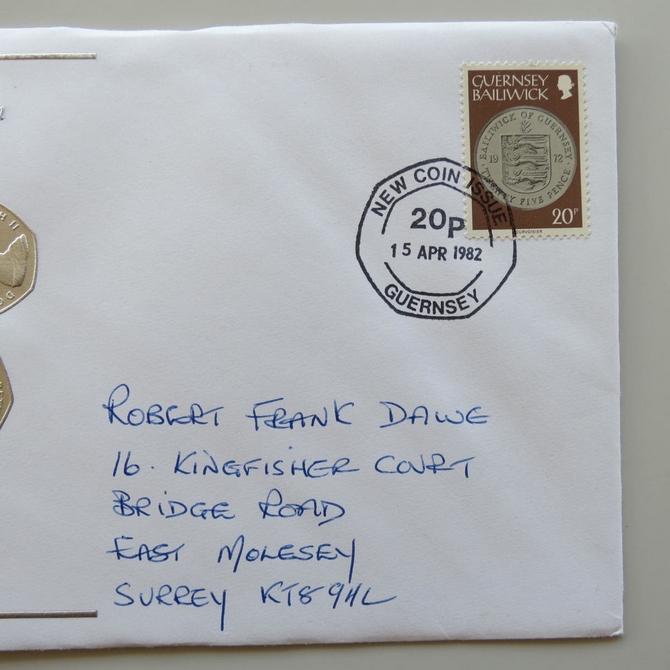 GUERNSEY
BAILIWICK
BAILIWICK OF GUERNSEY
19 72
TWENTY FIVE PENCE
20P
COURVOISIER
NEW COIN ISSUE
20P
15 APR 1982
GUERNSEY
ROBERT FRANK DAWE
16. KINGFISHER COURT
BRIDGE ROAD
EAST MOLESEY
SURREY KT8 9HL